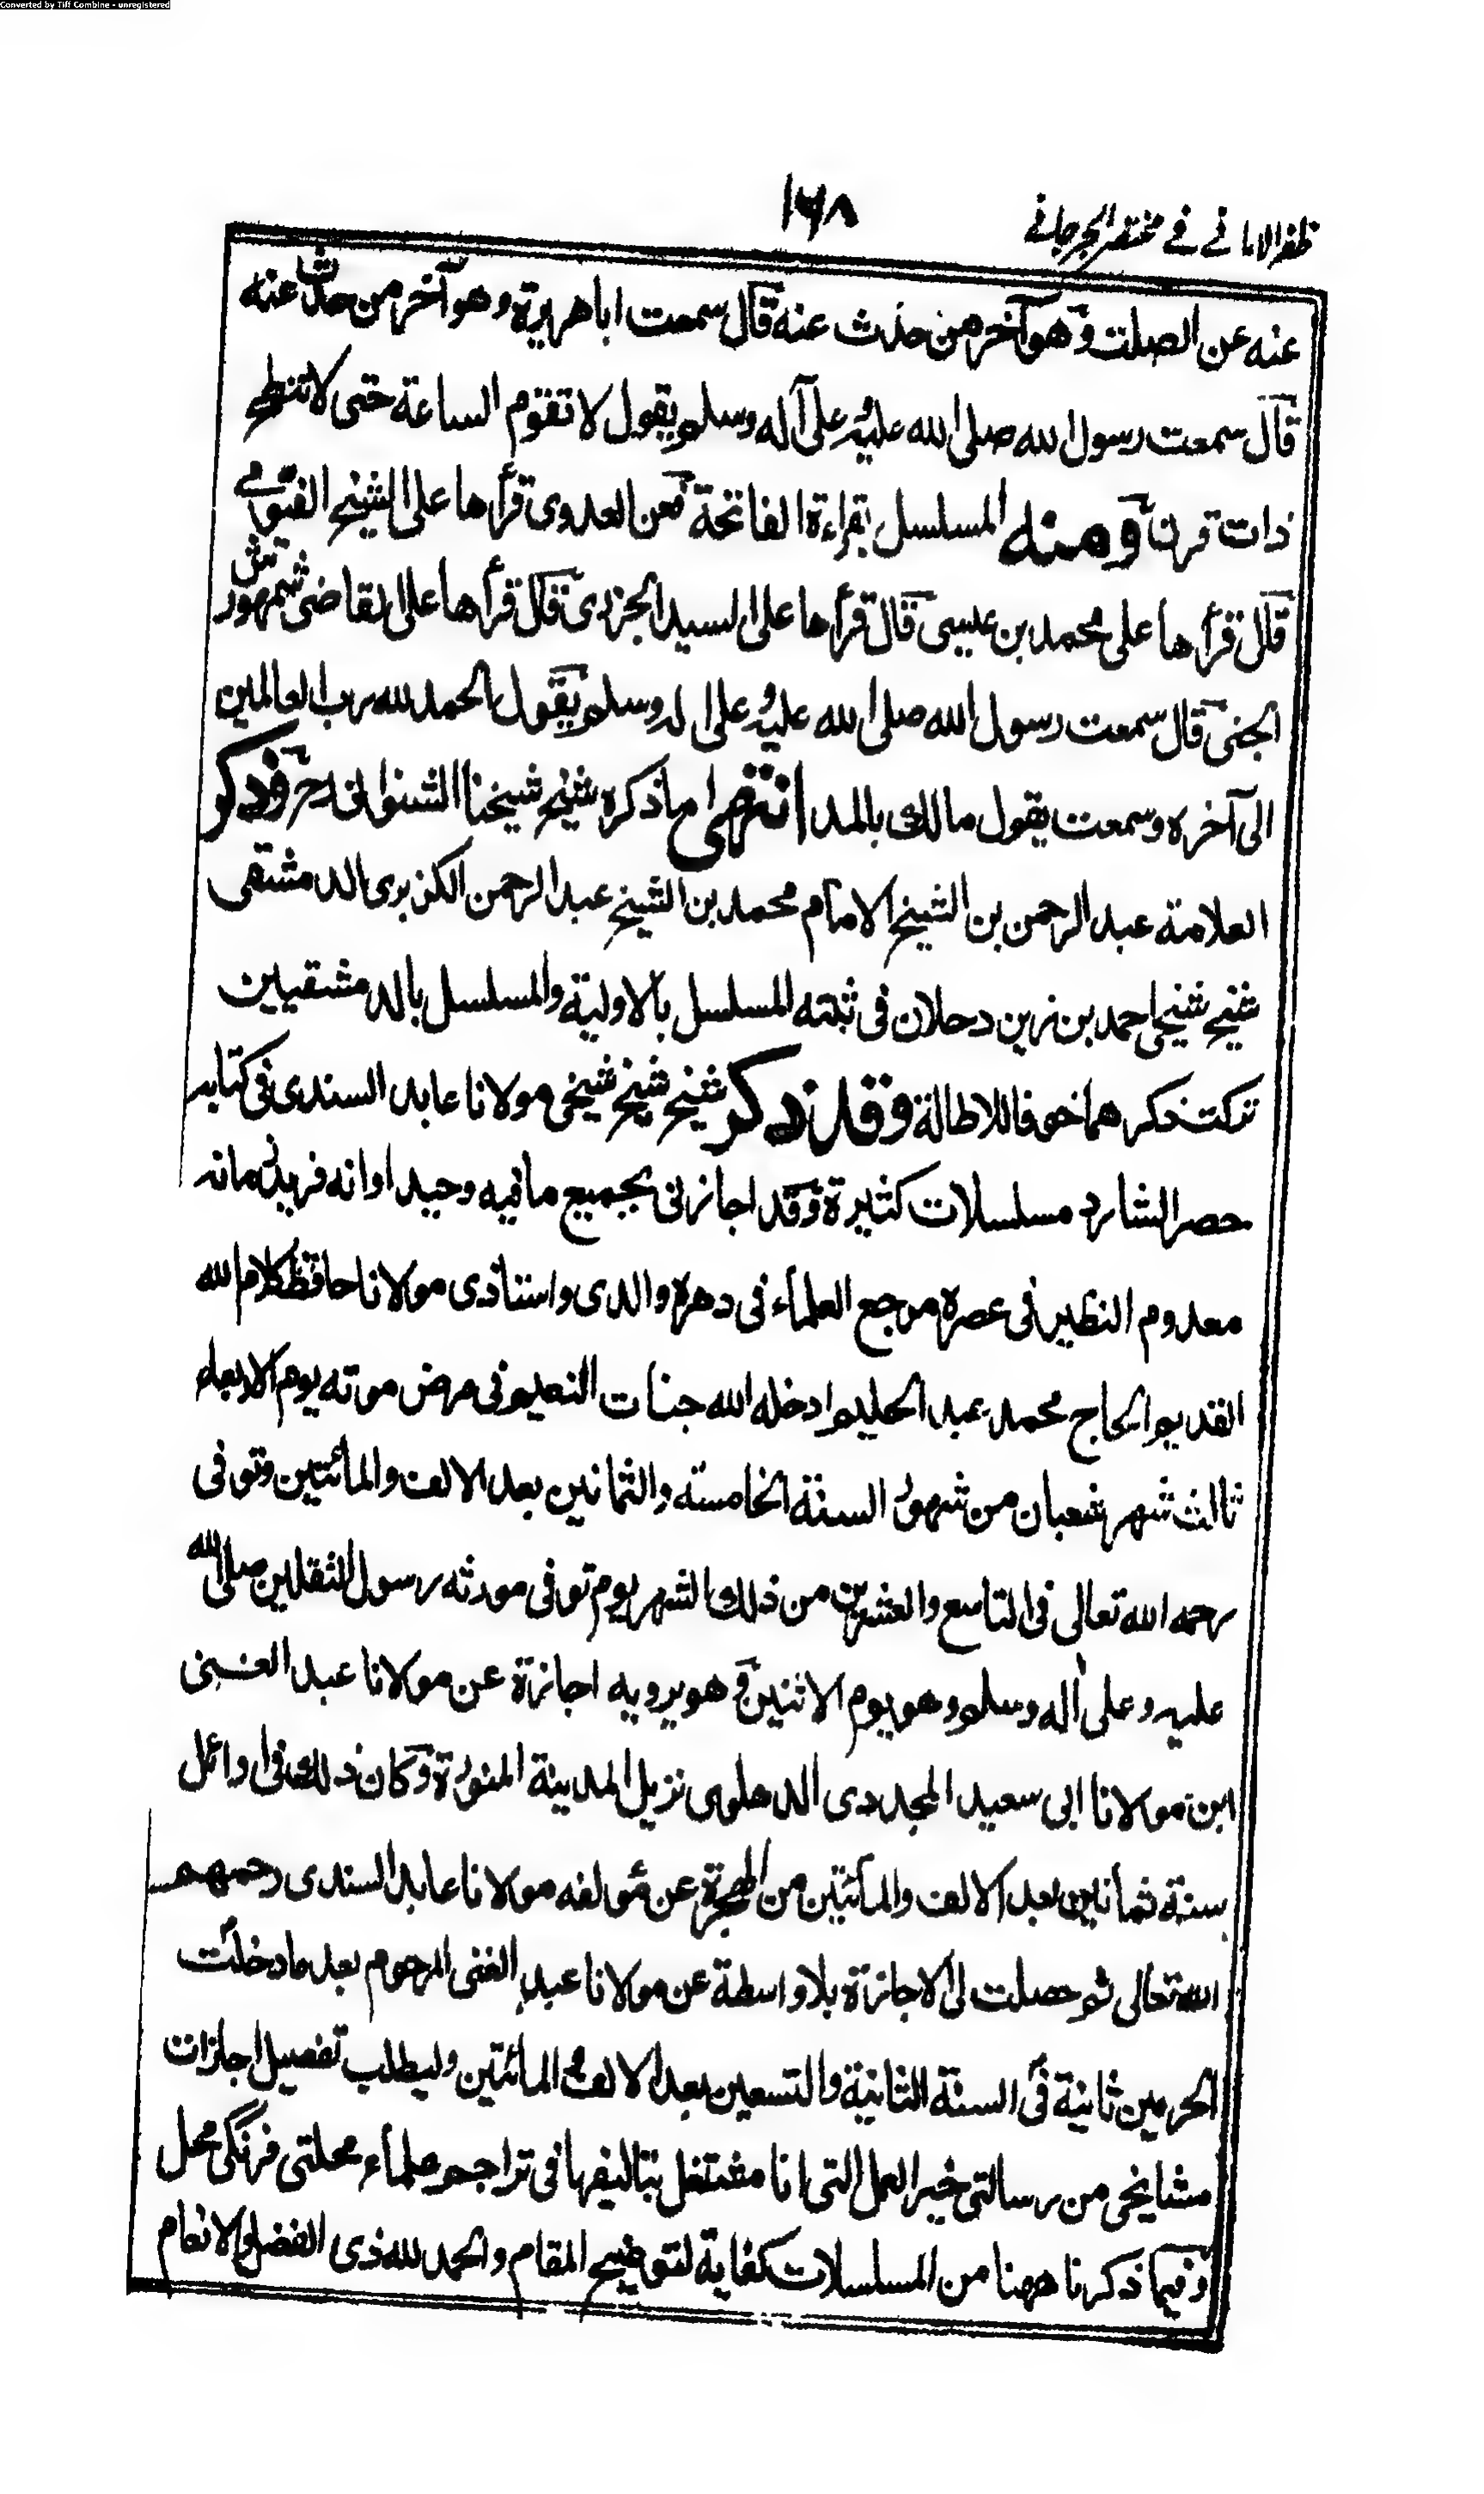 Converted by Tiff Combine - unregistered
ظفر الامانے فے مختصر الجرجانے
١٦٨
عنه عن الصلت وهو آخر من حدث عنه قال سمعت ابا هريرة وهو آخر من حدث عنه
قال سمعت رسول الله صلى الله عليه وعلى آله وسلم يقول لا تقوم الساعة حتى لا تنطح
ذات قرن ومنه المسلسل بقراءة الفاتحة فعن العدوى قرأها على الشيخ الفيومے
قال قرأها على محمد بن عيسى قال قرأها على السيد الجزرى قال قرأها على القاضى شمهورش
الجنى قال سمعت رسول الله صلى الله عليه وعلى اله وسلم يقول الحمد لله رب العالمين
الى آخره وسمعت يقول مالك بالمد انتهى ما ذكره شيخ شيخنا الشنوانى رح وذكر
العلامة عبد الرحمن بن الشيخ الامام محمد بن الشيخ عبد الرحمن الكزبرى الدمشقى
شيخ شيخى احمد بن زين دحلان فى ثبته المسلسل بالاولية والمسلسل بالدمشقيين
تركت ذكرهما خوفا للاطالة وقد ذكر شيخ شيخ شيخى مولانا عابد السندى فى كتابه
حصر الشارد مسلسلات كثيرة وقد اجازنى بجميع مافيه وحيد اوانه فريد زمانه
معدوم النظير فى عصره مرجع العلماء فى دهره والدى واستاذى مولانا حافظ كلام الله
القديم الحاج محمد عبد الحليم ادخله الله جنات النعيم فى مرض موته يوم الاربعاء
ثالث شهر شعبان من شهور السنة الخامسة والثمانين بعد الالف والمأئتين وتوفى
رحمه الله تعالى فى التاسع والعشرين من ذلك الشهر يوم توفى مورثه رسول الثقلين صلى الله
عليه وعلى آله وسلم وهو يوم الاثنين وهو يرويه اجازة عن مولانا عبد الغنى
ابن مولانا ابى سعيد المجددى الدهلوى نزيل المدينة المنورة وكان ذلك فى اوائل
سنة ثمانين بعد الالف والمأئتين من الهجرة عن مؤلفه مولانا عابد السندى رحمهم
الله تعالى ثم حصلت لى الاجازة بلا واسطة عن مولانا عبد الغنى المرحوم بعد ما دخلت
الحرمين ثانية فى السنة الثانية والتسعين بعد الالف والمائتين وليطلب تفصيل اجازات
مشايخى من رسالتى خير العمل التى انا مشتغل بتاليفها فى تراجم علماء محلتى فرنگى محل
وفيما ذكرنا ههنا من المسلسلات كفاية لتوضيح المقام والحمد لله ذى الفضل والانعام